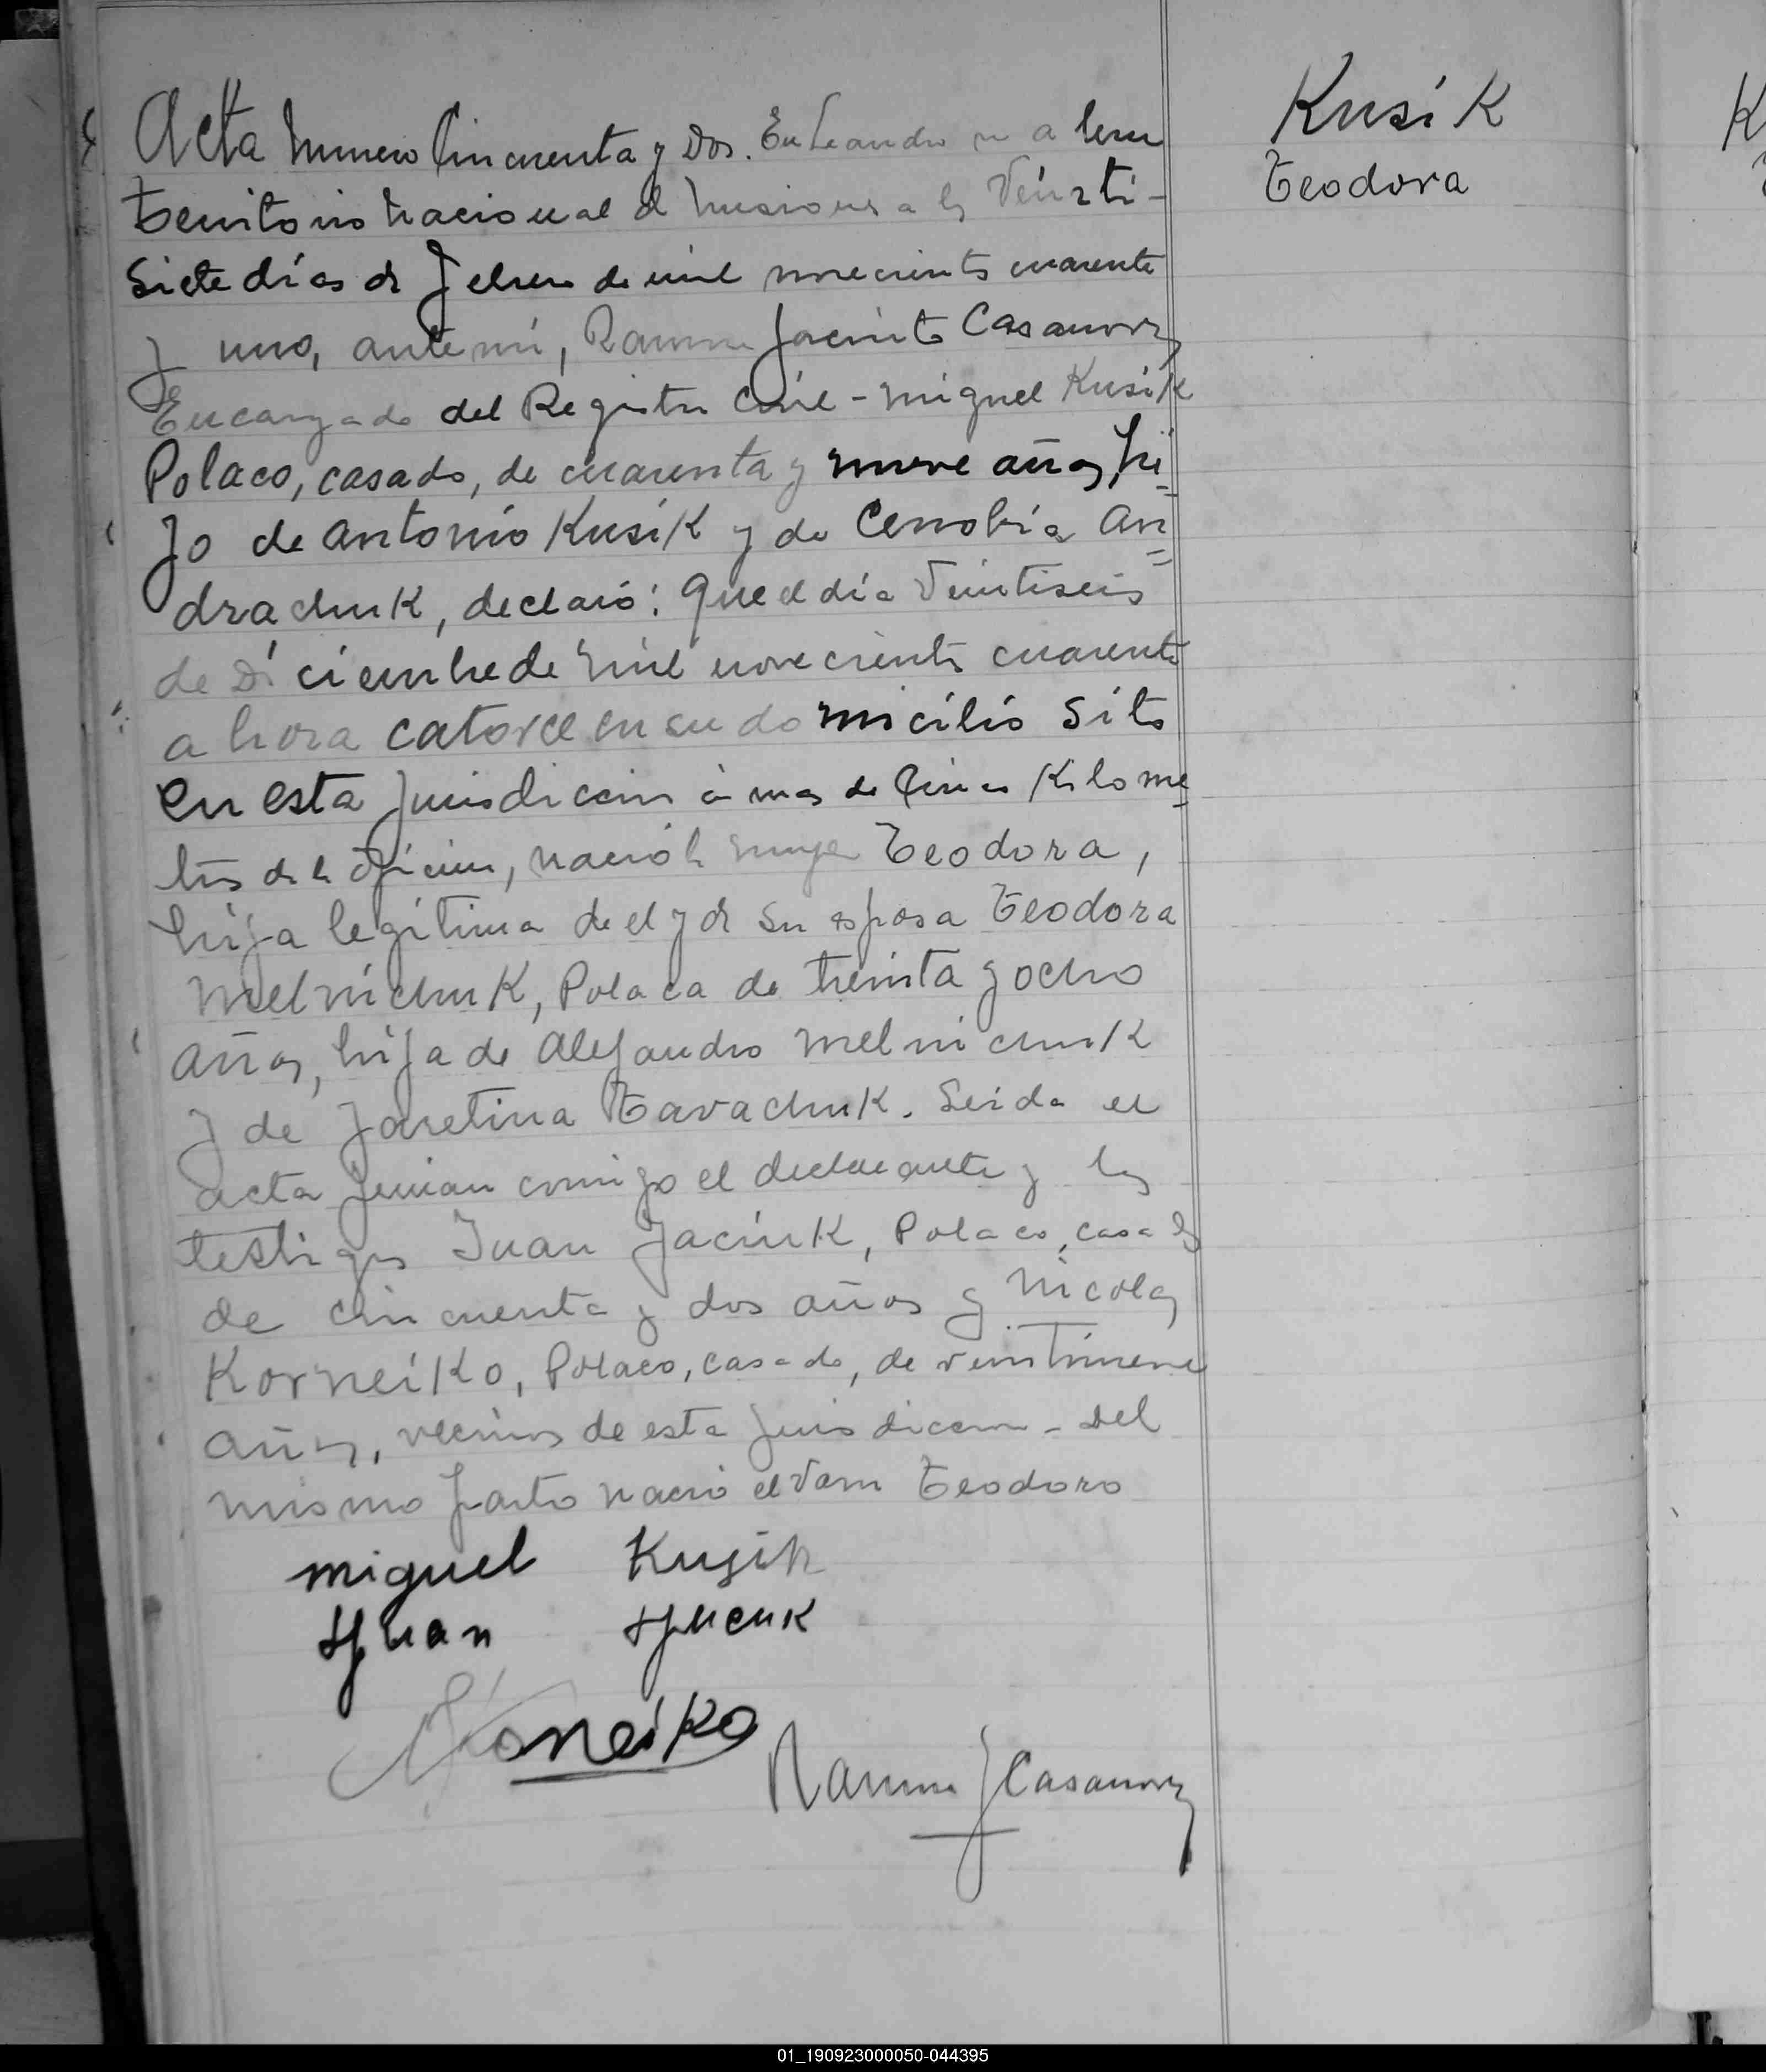 Kusik
Teodora
Acta Numero Cincuenta y Dos. En Leandro N Alem
Territorio Nacional de Misiones a los Veinti-
siete días de Febrero de mil novecientos cuarenta
y uno, ante mí, Ramon Jacinto Casanova,
Encargado del Registro Civil - Miguel Kusik
Polaco, casado, de cuarenta y nueve años, hi=
jo de Antonio Kusik y de Cenobia An=
drachuk, declaró: Que el día Veintiseis
de Diciembre de mil novecientos cuarenta
a hora catorce en su domicilio sito
en esta jurisdiccion a mas de cinco Kilome=
tros de la oficina, nació la mujer Teodora,
hija legítima de el y de su esposa Teodora
Melnichuk, Polaca de treinta y ocho
años, hija de Alejandro Melnichuk
y de Taravachuk. Leida el
acta firman conmigo el declarante y los
testigos Juan Jaciuk, Polaco, casado
de cincuenta y dos años y Nicolas
Korneiko, Polaco, casado, de veintinueve
años, vecinos de esta jurisdiccion - Del
mismo parto nació el varon Teodoro
Miguel Kusik
Juan
Korneiko
Ramon J Casanova
01_190923000050-044395